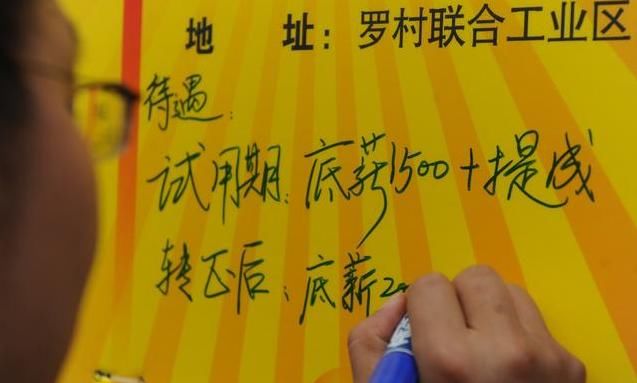 地 址: 罗村联合工业区
待遇:
试用期: 底薪1500+提成
转正后: 底薪2